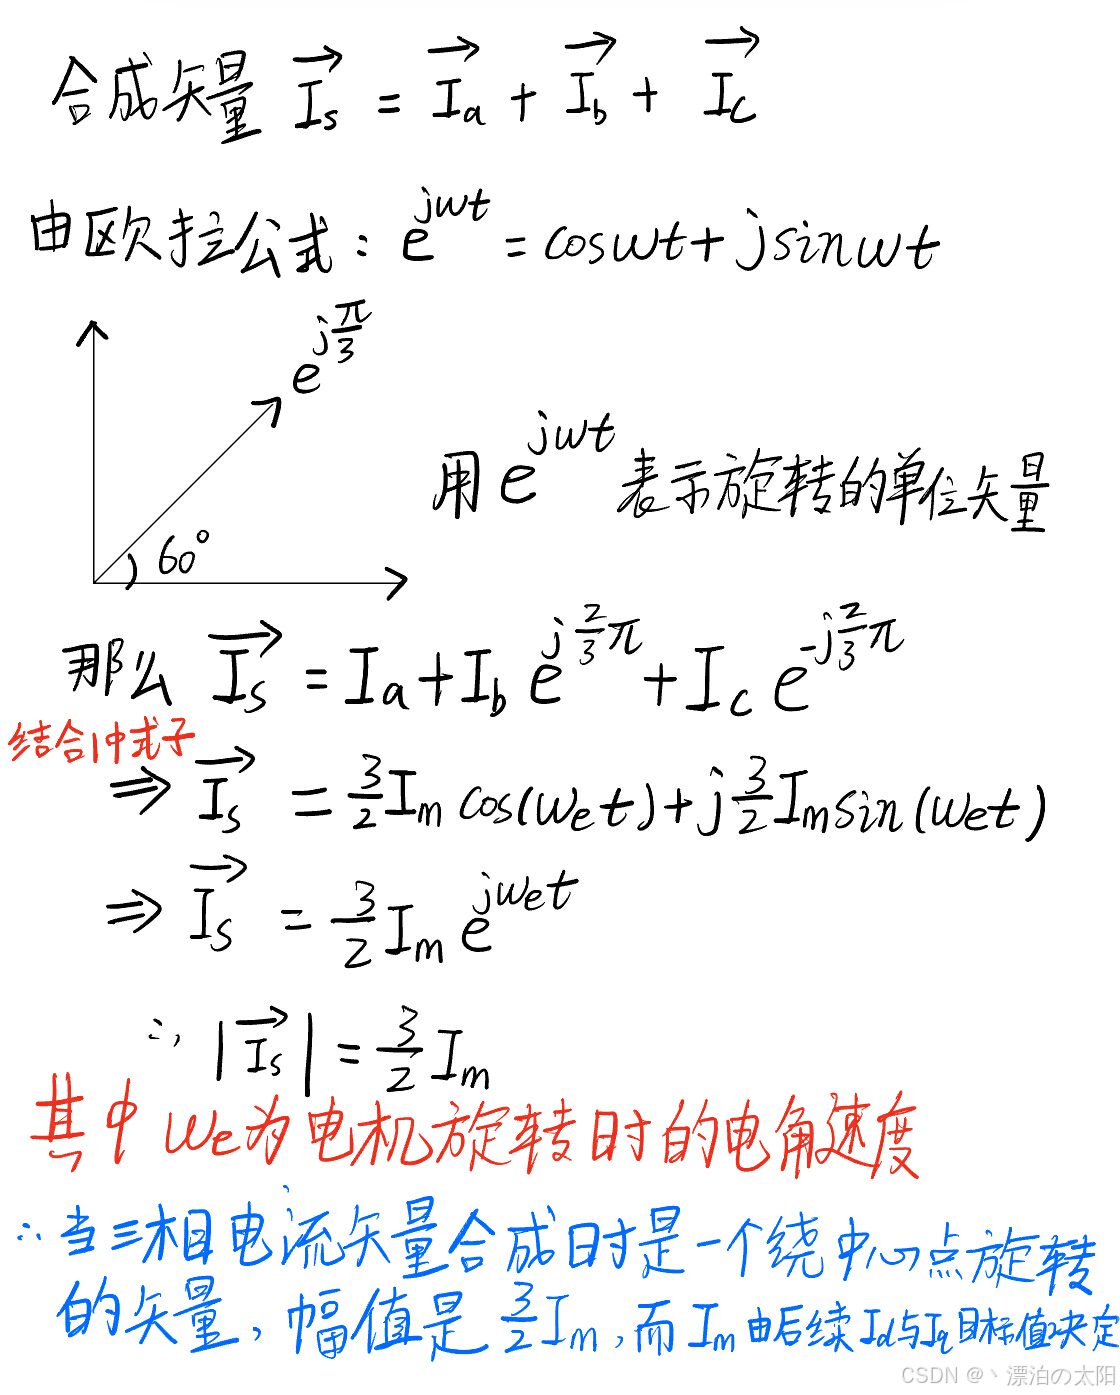 合成矢量 $\vec{I_s} = \vec{I_a} + \vec{I_b} + \vec{I_c}$
由欧拉公式：$e^{jwt} = coswt + jsinwt$
$e^{j\frac{\pi}{3}}$
用 $e^{jwt}$ 表示旋转的单位矢量
60°
那么 $\vec{I_s} = I_a + I_b e^{j\frac{2}{3}\pi} + I_c e^{-j\frac{2}{3}\pi}$
结合1中式子
$\Rightarrow \vec{I_s} = \frac{3}{2} I_m cos(w_e t) + j\frac{3}{2} I_m sin(w_e t)$
$\Rightarrow \vec{I_s} = \frac{3}{2} I_m e^{jw_e t}$
$\therefore, |\vec{I_s}| = \frac{3}{2} I_m$
其中 $w_e$为电机旋转时的电角速度
∴当三相电流矢量合成时是一个绕中心点旋转
的矢量，幅值是 $\frac{3}{2} I_m$，而 $I_m$ 由后续 $I_d$与$I_q$目标值决定
CSDN @丶漂泊の太阳